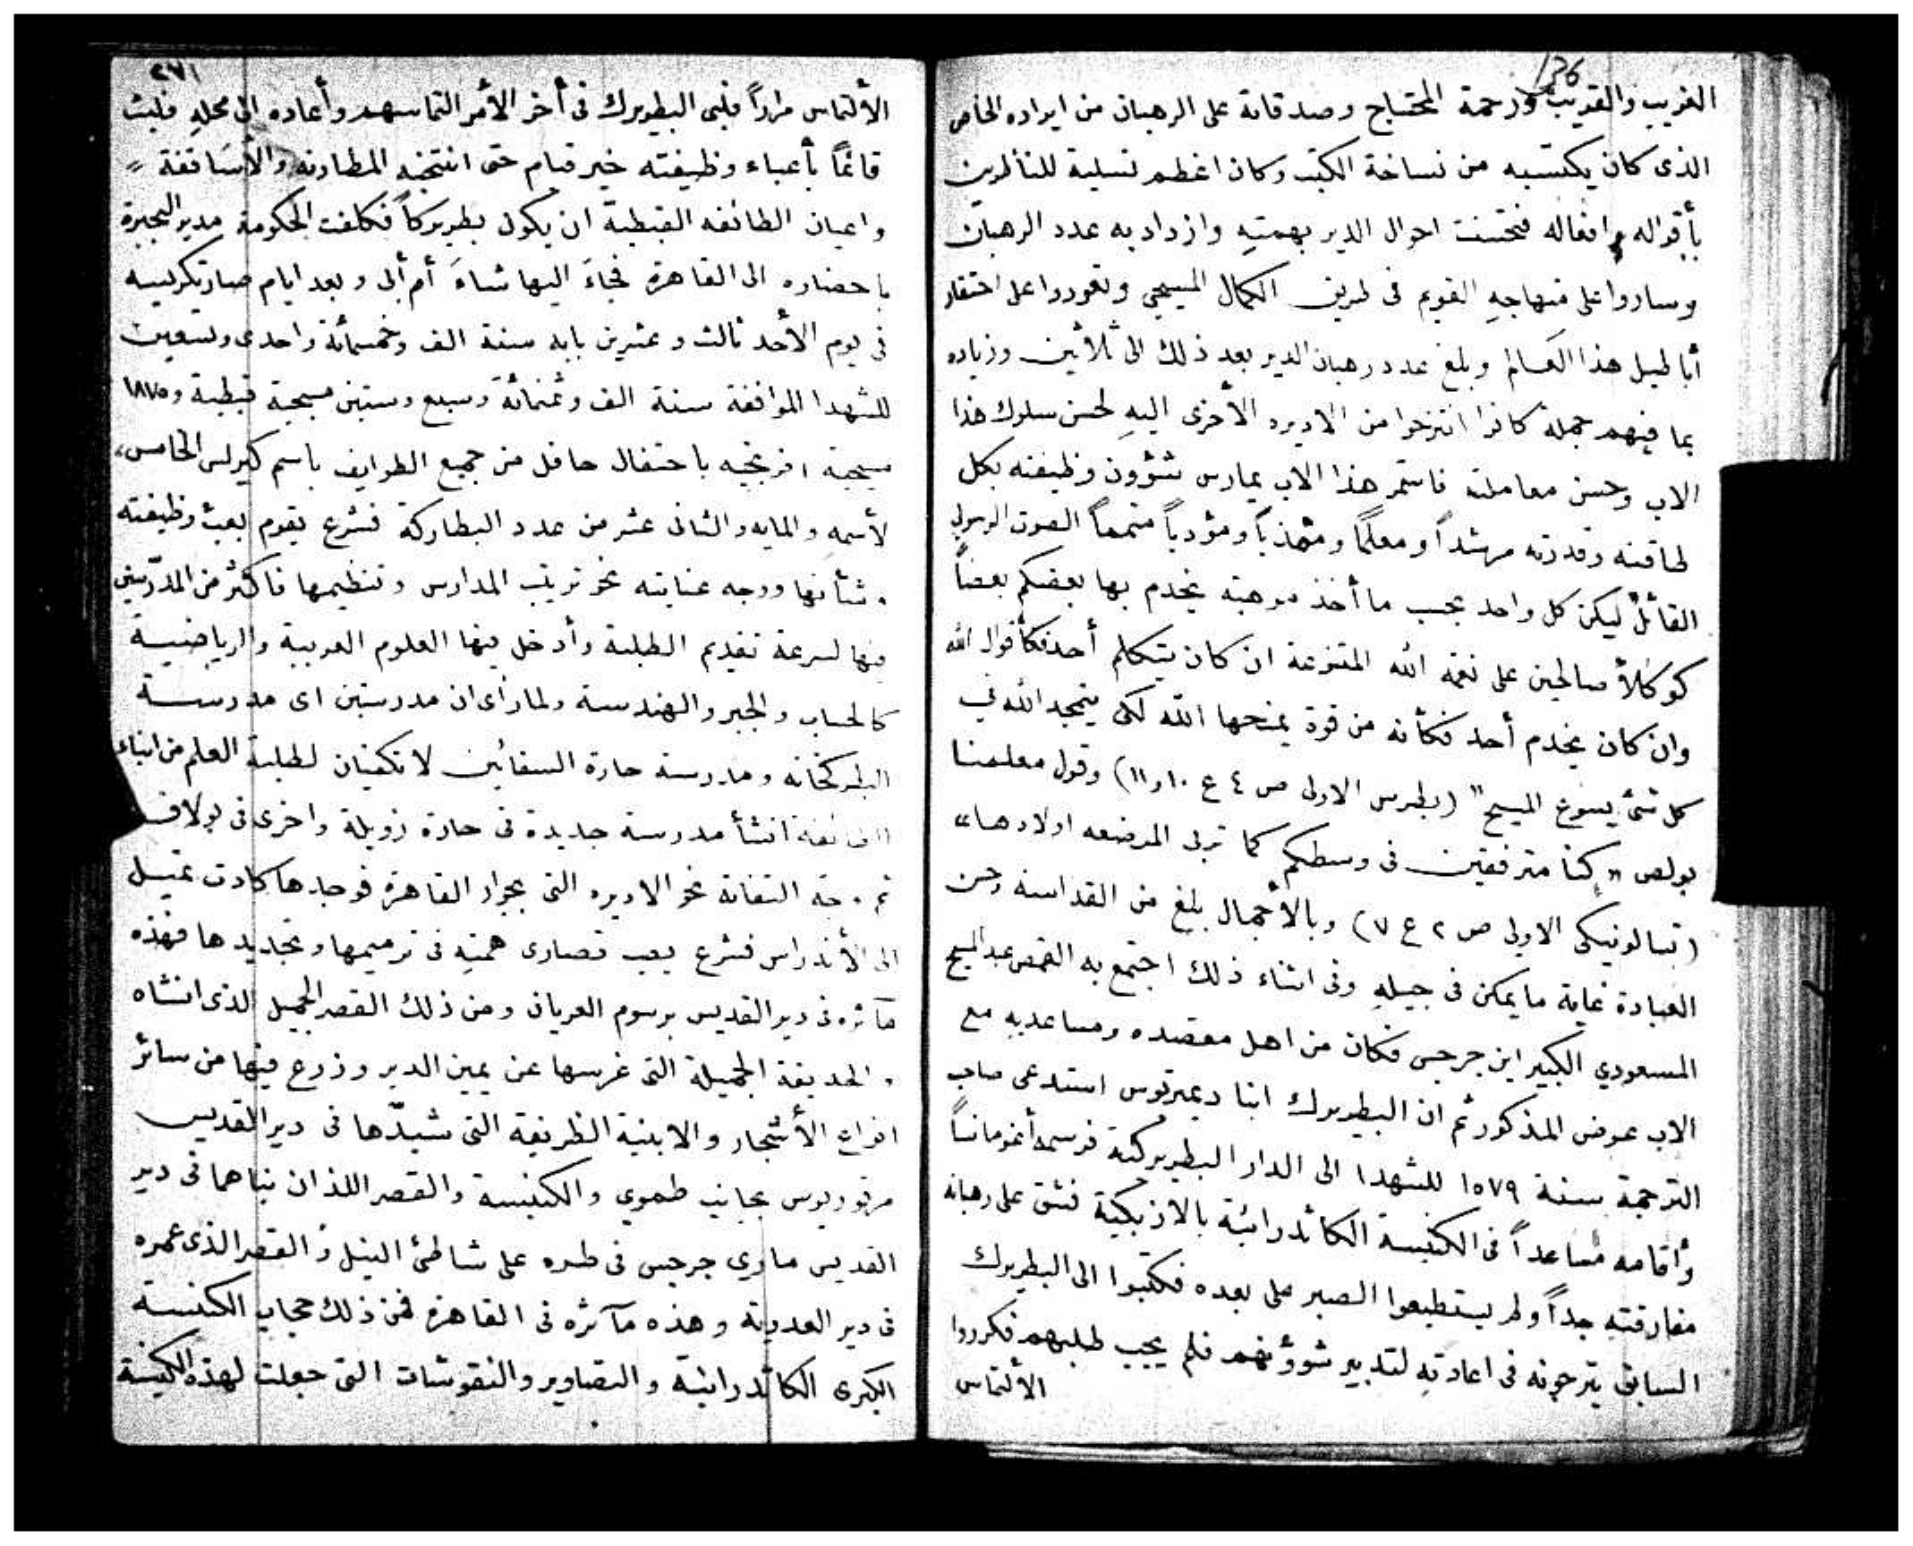 136
الغريب والقريب ورحمة المحتاج وصدقاته على الرهبان من ايراده الخاص
الذى كان يكتسبه من نساخة الكتب وكان اعظم تسلية للناظرين
بأقواله وافعاله فتحسنت احوال الدير بهمتهِ وازداد به عدد الرهبان
وساروا على منهاجهِ القويم فى طريق الكمال المسيحي وتعودوا على احتقار
أباطيل هذا العالم وبلغ عدد رهبان الدير بعد ذلك الى ثلاثين وزياده
بما فيهم جملة كانوا انتزحوا من الاديره الأخرى اليهِ لحسن سلوك هذا
الاب وحسن معاملته فاستمر هذا الاب يمارس شؤون وظيفته بكل
طاقته وقدرته مرشداً ومعلمًا ومهذباً ومؤدباً متممًا الصوت الرسولي
القائل ليكن كل واحد بحسب ما أخذ موهبة يخدم بها بعضكم بعضاً
كوكلأ صالحين على نعمة الله المتنوعة ان كان يتكلم أحد فكأقوال الله
وان كان يخدم أحد فكأنه من قوة يمنحها الله لكى يتمجد الله في
كل شئ يسوع المسيح" (بطرس الاولى ص ٤ ع ١٠ و١١) وقول معلمنا
بولص "كنا مترفقين فى وسطكم كما تربى المرضعه اولادها"
(تسالونيكى الاولى ص ٢ ع ٧) وبالأجمال بلغ من القداسة وحسن
العبادة غاية ما يمكن فى جيلهِ وفى اثناء ذلك اجتمع به القمص عبد المسيح
المسعودي الكبير ابن جرجس فكان من اهل معضده ومساعديه مع
الاب عوض المذكور ثم ان البطريرك انبا ديمتريوس استدعى صاحب
الترجمة سنة ١٥٧٩ للشهدا الى الدار البطريركية فرسمه أغومانساً
وأقامه مساعداً فى الكنيسة الكاتدرائية بالازبكية فشق على رهبانه
مفارقته جداً ولم يستطيعوا الصبر على بعده فكتبوا الى البطريرك
السابق يترجونه فى اعادته لتدبير شؤونهم فلم يجب طلبهم فكرروا
الألتماس
٢٧١
الألتماس مراراً فلبى البطريرك فى أخر الأمر التماسهم وأعاده الى محلهِ فلبث
قائمًا بأعباء وظيفته خير قيام حتى انتخبه المطارنه والأساقفة "
واعيان الطائفه القبطية ان يكون بطريركاً فكلفت الحكومة مدير البحيرة
باحضاره الى القاهرة فجاءَ اليها شاءَ أم أبى وبعد ايام صار تكريسه
فى يوم الأحد ثالث وعشرين بابه سنة الف وخمسمائة واحدى وتسعين
للشهدا الموافقة سنة الف وثمنمائة وسبع وستين مسيحية قبطية و١٨٧٥
مسيحية افرنجيه باحتفال حافل من جميع الطوايف باسم كيرلس الخامس،
لأسمه والمايه والثانى عشر من عدد البطاركة فشرع يقوم بعبء وظيفته
وشأنها ووجه عنايته نحو ترتيب المدارس وتنظيمها فاكثر من المدرّسين
فيها لسرعة تقديم الطلبة وأدخل فيها العلوم العربية والرياضية
كالحساب والجبر والهندسة ولما رأى ان مدرستين اى مدرسة
البطركخانه ومدرسة حارة السقائين لا تكفيان لطلبة العلم من ابناء
الطائفة انشأ مدرسة جديدة فى حارة زويلة واخرى فى بولاق
ثم وجه التفاته نحو الاديره التى بجوار القاهرة فوجدها كادت تميل
الى الأندراس فشرع يصب قصارى همته فى ترميمها وتجديدها فهذه
مآثره فى دير القديس برسوم العريان ومن ذلك القصر الجميل الذى انشاه
والحديقة الجميلة التى غرسها عن يمين الدير وزرع فيها من سائر
انواع الأشجار والابنية الظريفة التى شيدّها فى دير القديس
مرقوريوس بجانب طموي والكنيسة والقصر اللذان بناهما فى دير
القديس ماري جرجس فى طره على شاطئ النيل والقصر الذى عمره
فى دير العدوية وهذه مآثره فى القاهرة فمن ذلك حجاب الكنيسة
الكبرى الكاتدرائية والتصاوير والنقوشات التى جعلت لهذه الكنيسة